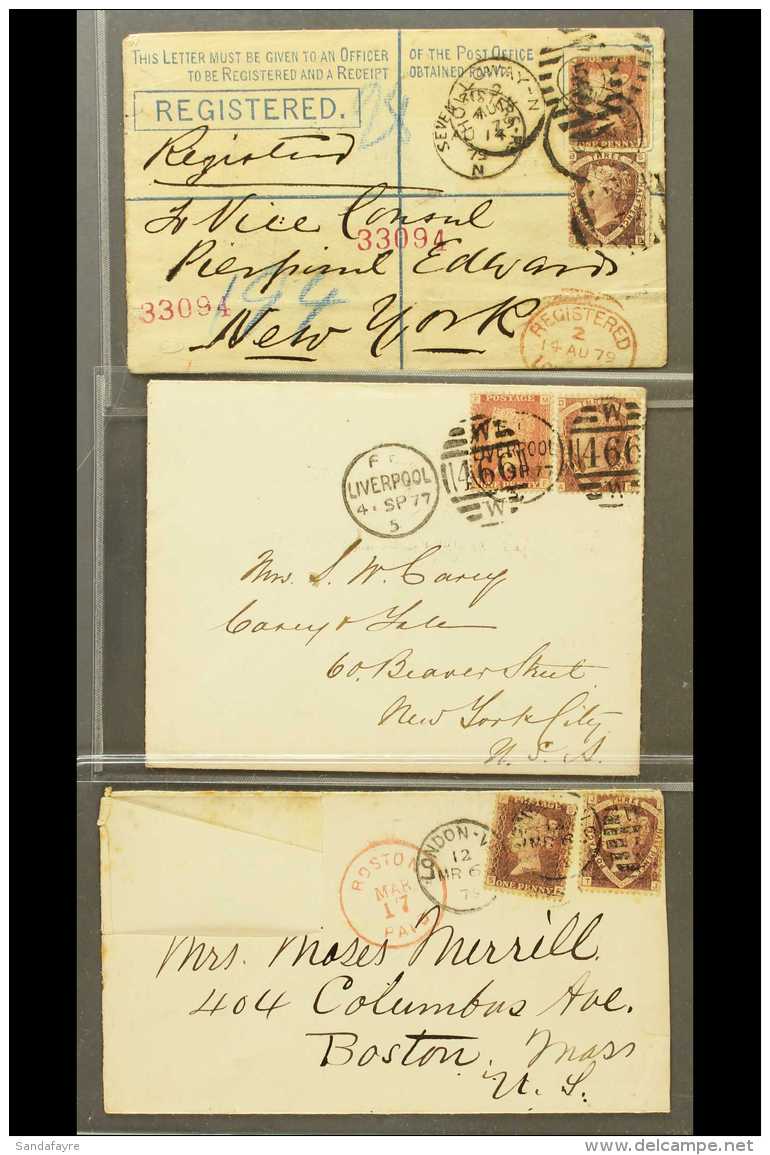 THIS LETTER MUST BE GIVEN TO AN OFFICER OF THE POST OFFICE
TO BE REGISTERED AND A RECEIPT OBTAINED FOR IT
REGISTERED.
28
79
N
ONE PENNY
THREE
Registered
H. M. Vice Consul
33094
Pierpont Edwards
33094
194
New York
REGISTERED
2
14 AU 79
POSTAGE
LIVERPOOL
4. SP 77
5
W
466
W
LIVERPOOL
SP 77
W
466
W
Mrs. S. W. Carey
Carey & Yale
60. Beaver Street
New York City
U. S. A.
BOSTON
MAR
17
PAID
LONDON-W
12
MR 6
79
ONE PENNY
MR 6
THREE
Mrs. Moses Merrill.
404 Columbus Ave.
Boston, Mass
U. S.
Sandafayre
www.delcampe.net